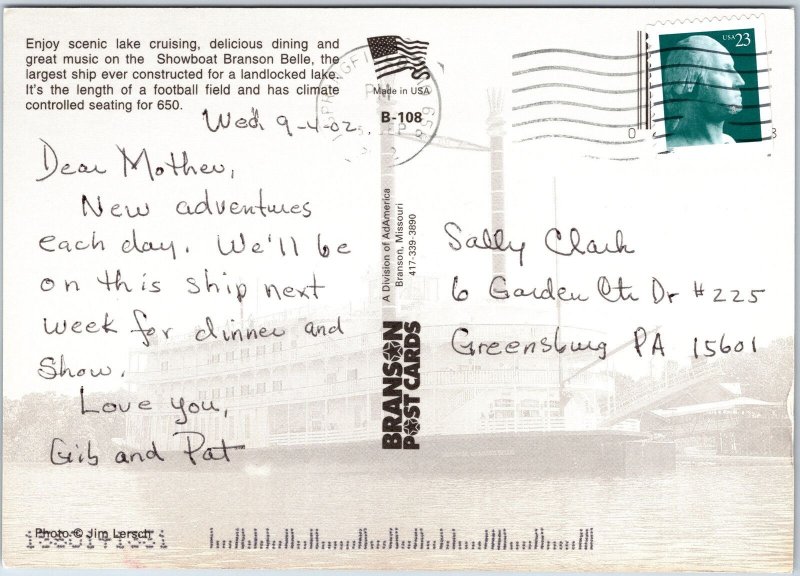 Enjoy scenic lake cruising, delicious dining and
great music on the Showboat Branson Belle, the
largest ship ever constructed for a landlocked lake.
It's the length of a football field and has climate
controlled seating for 650.
Made in USA
B-108
USA 23
Wed 9-4-02
Dear Mother,
New adventures
each day. We'll be
on this ship next
week for dinner and
show.
Love you,
Gib and Pat
A Division of AdAmerica
Branson, Missouri
417-339-3890
BRANSON
POST CARDS
Sally Clark
6 Garden Ctr Dr #225
Greensburg PA 15601
Photo © Jim Lersch